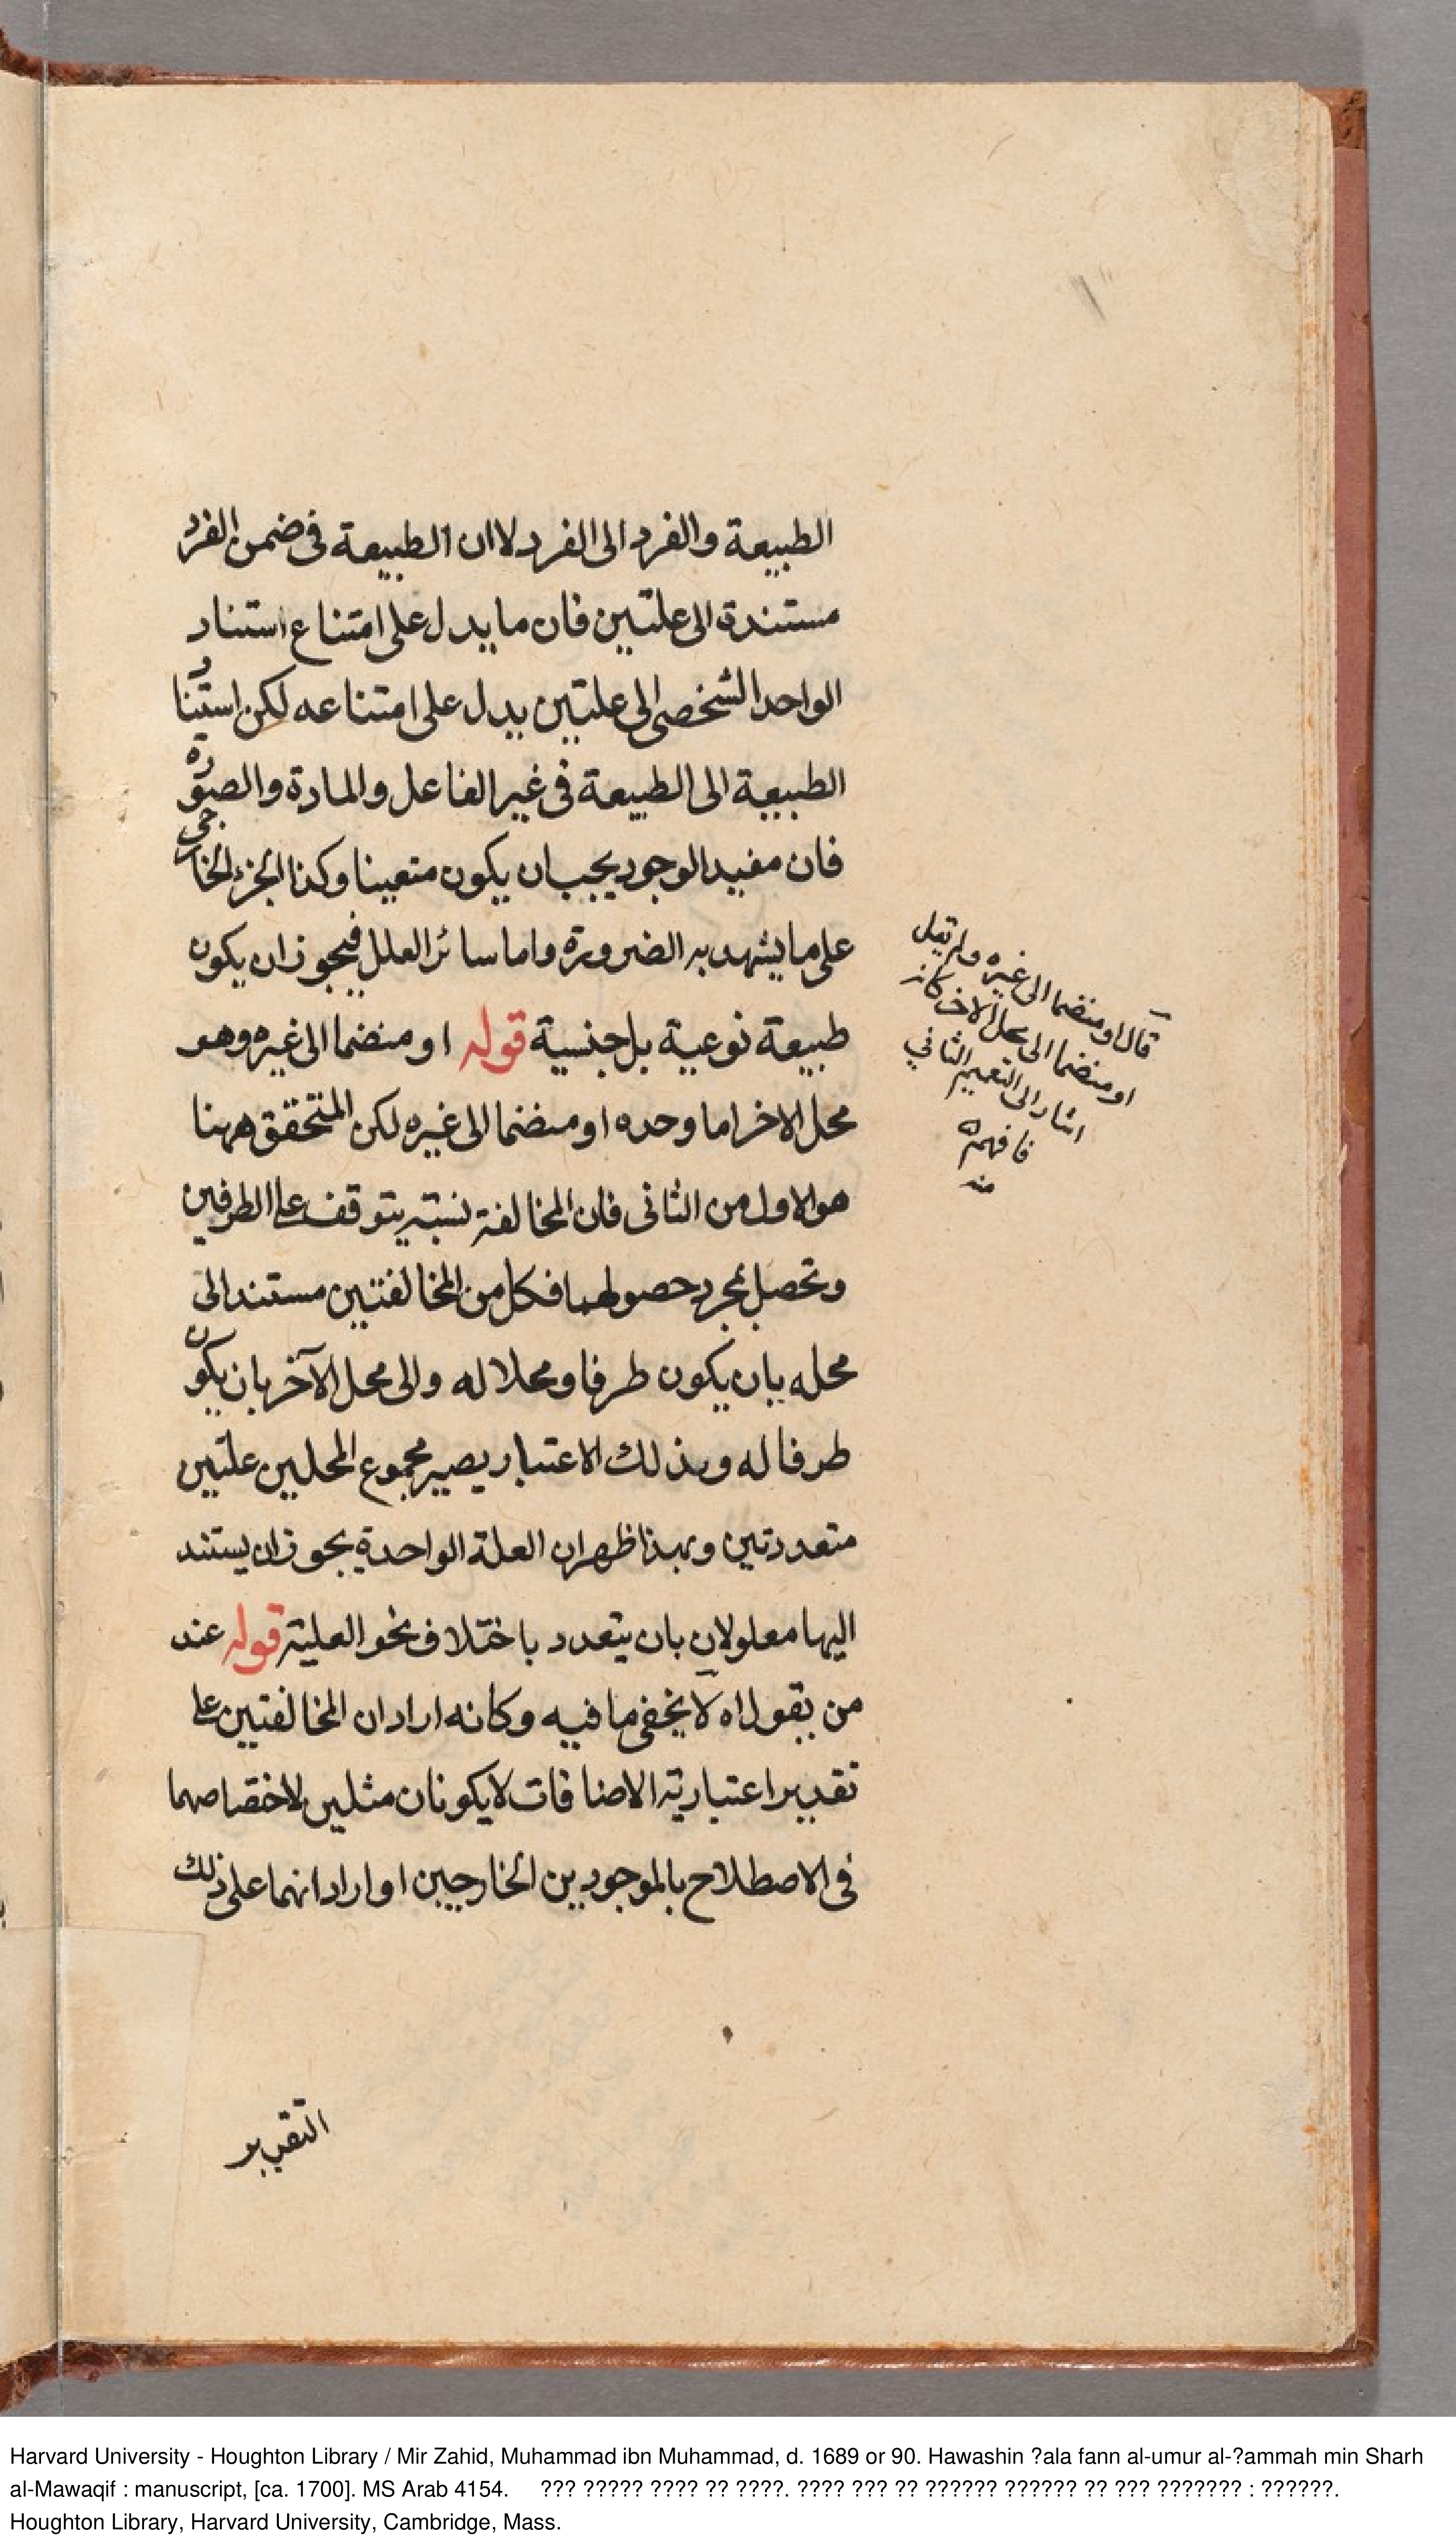 الطبيعة والفرد الى الفرد لا ان الطبيعة فى ضمن الفرد
مستندة الى علتين فان ما يدل على امتناع استناد
الواحد الشخصى الى علتين يدل على امتناعه لكن استناد
الطبيعة الى الطبيعة فى غير الفاعل والمادة والصورة
فان مفيد الوجود يجب ان يكون متعينا وكذا الجزء الخارجى
على ما يشهد به الضرورة واما سائر العلل فيجوز ان يكون
طبيعة نوعية بل جنسية قوله او منضما الى غيره وهو
محل الاخر اما وحده او منضما الى غيره لكن المتحقق ههنا
هو الاول من الثانى فان المخالفة نسبة يتوقف على الطرفين
وتحصل بمجرد حصولهما فكل من المخالفتين مستند الى
محله بان يكون طرفا ومحلا له والى محل الآخر بان يكون
طرفا له وبذلك الاعتبار يصير مجموع المحلين علتين
متعددتين وبهذا ظهر ان العلة الواحدة يجوز ان يستند
اليها معلولان بان يتعدد باختلاف نحو العلية قوله عند
من يقول اه لا يخفى ما فيه وكانه اراد ان المخالفتين على
تقدير اعتبارية الاضافات لا يكونان مثلين لاختصاصهما
فى الاصطلاح بالموجودين الخارجيين او اراد انهما على ذلك
التقدير
قال او منضما الى غيره ولم يقل
او منضما الى محل الاخر كانه
اشار الى التعميم الثاني
فافهم
منه
Harvard University - Houghton Library / Mir Zahid, Muhammad ibn Muhammad, d. 1689 or 90. Hawashin ?ala fann al-umur al-?ammah min Sharh
al-Mawaqif : manuscript, [ca. 1700]. MS Arab 4154. ??? ????? ???? ?? ????. ???? ??? ?? ?????? ?????? ?? ??? ??????? : ??????.
Houghton Library, Harvard University, Cambridge, Mass.